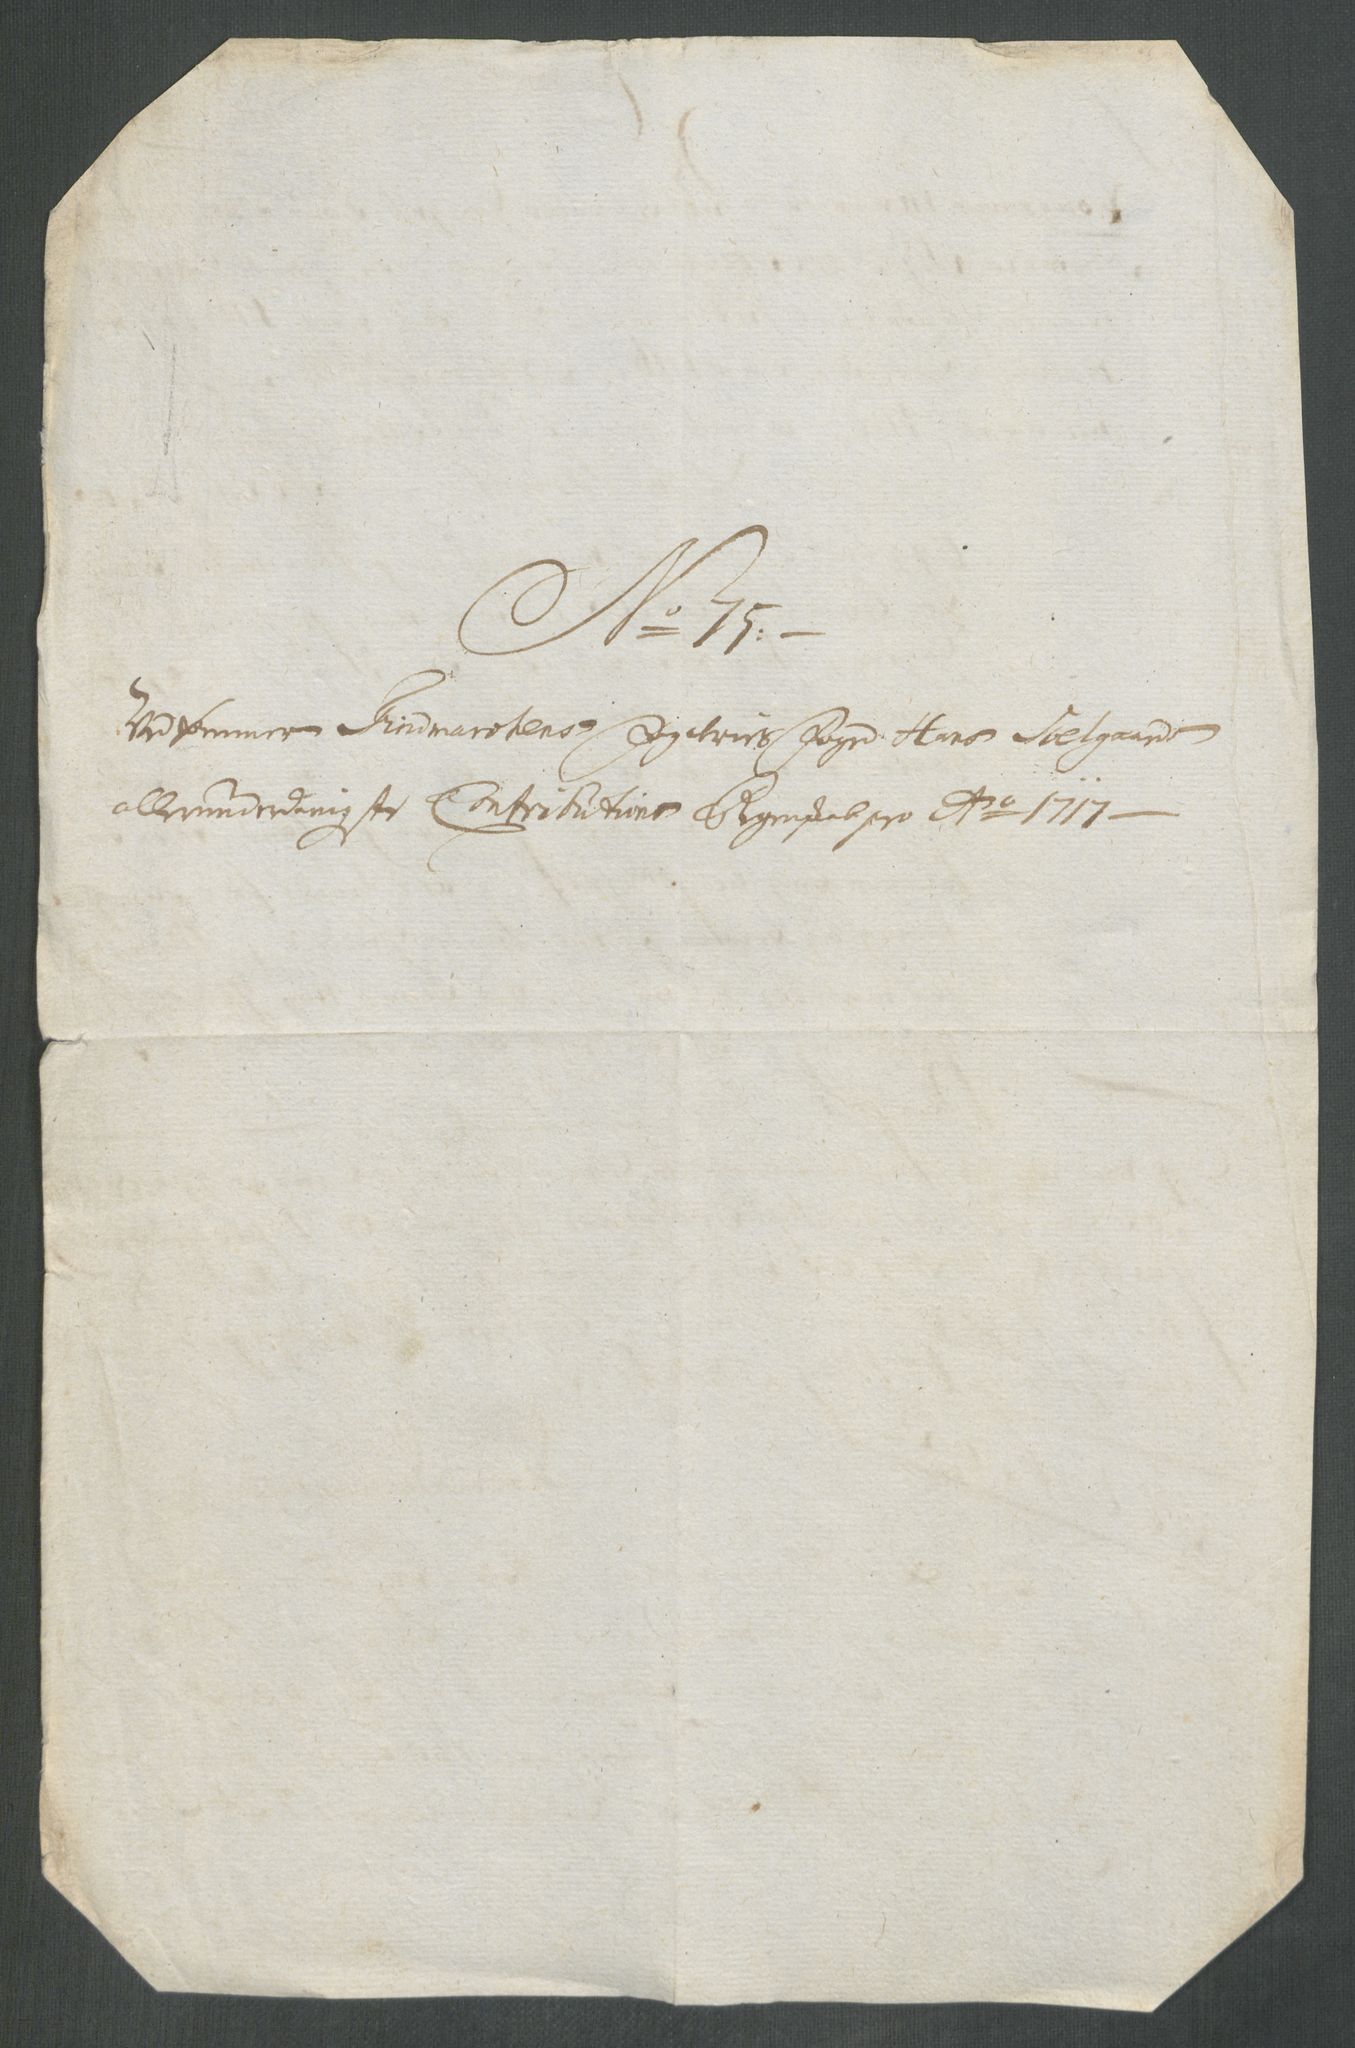 No 75:—
Vedkommer Findmarchens Fogderies Foged Hans Soelgaards
allerunderdanigste Contributions Regenskab pro Ao 1717—